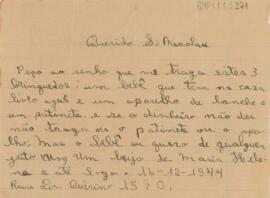 Querido S. Nicolau
Peço ao senhor que me traga estes 3
brinquedos: um bebê que tem na casa
livro azul e um aparelho de lanche e
um patinete, e se o dinheiro não der
não traga os o patinete ou o apa-
relho. Mas o bebê eu quero de qualquer
jeito Um beijo de Maria Hele-
na e até logo. 16-12-1944
Rua Dr. Quirino 1580.